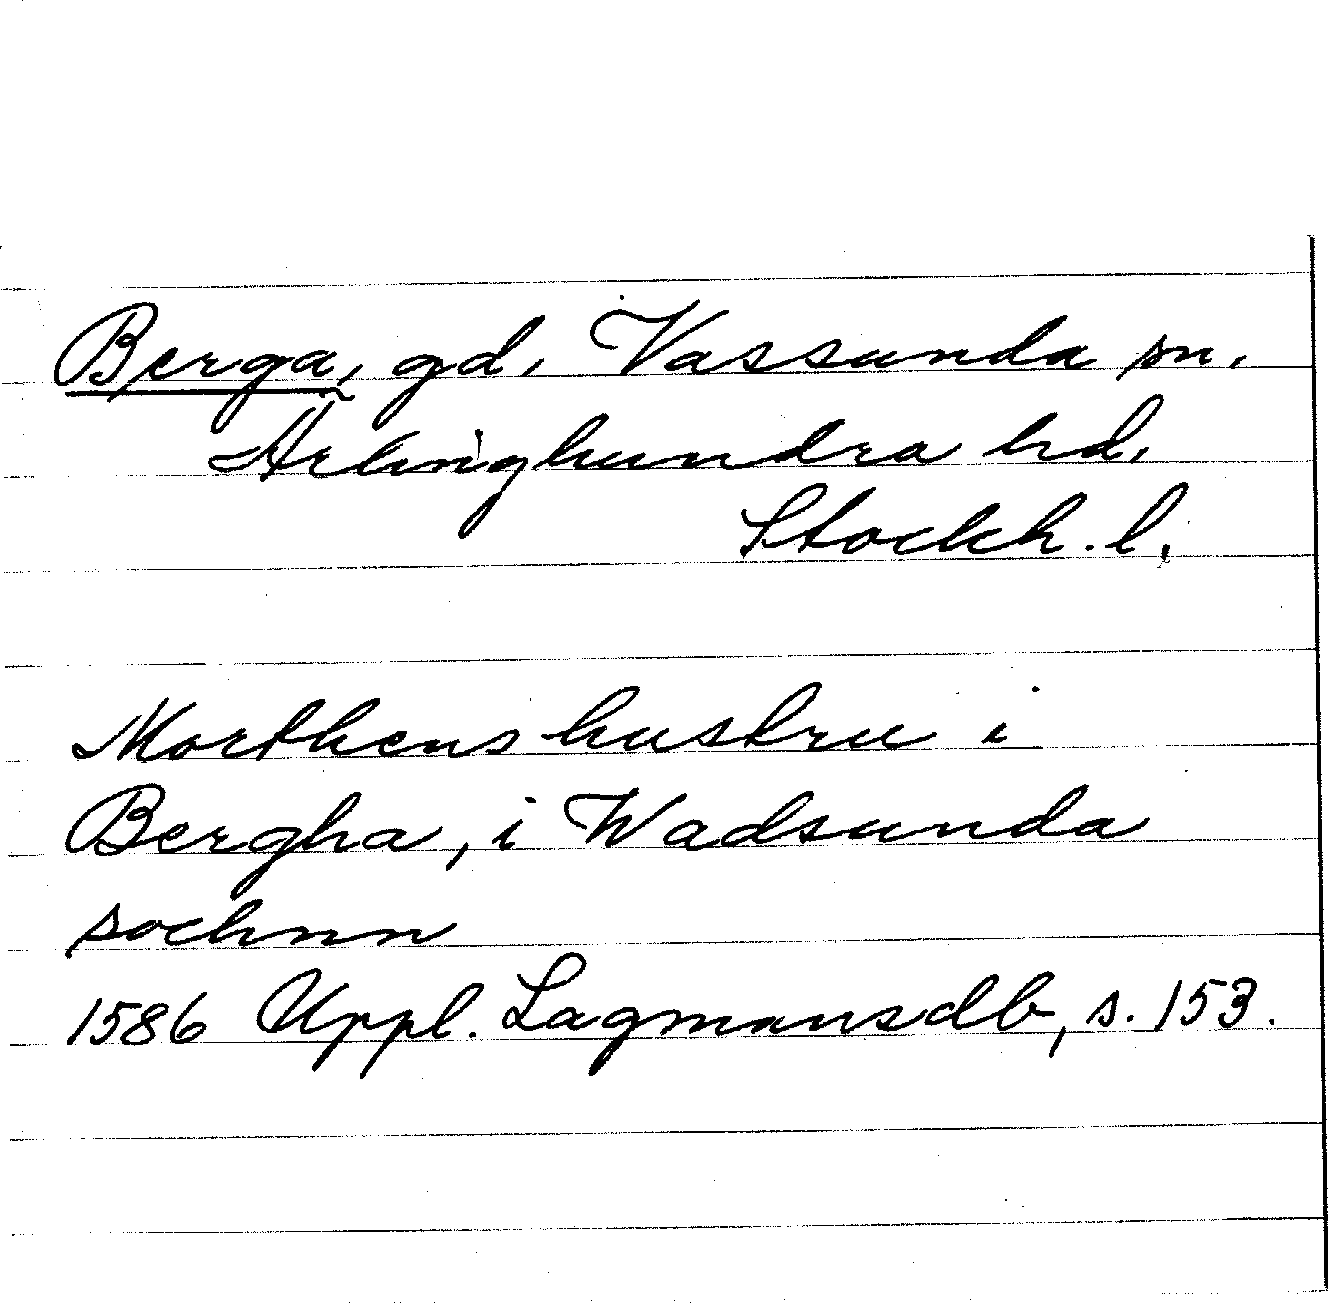 Berga, gd, Vassunda sn,
Ärlinghundra hd,
Stockh. l.
Morthens hustru i
Bergha, i Wadsunda
sochnn
1586 Uppl. Lagmansdb, s. 153.